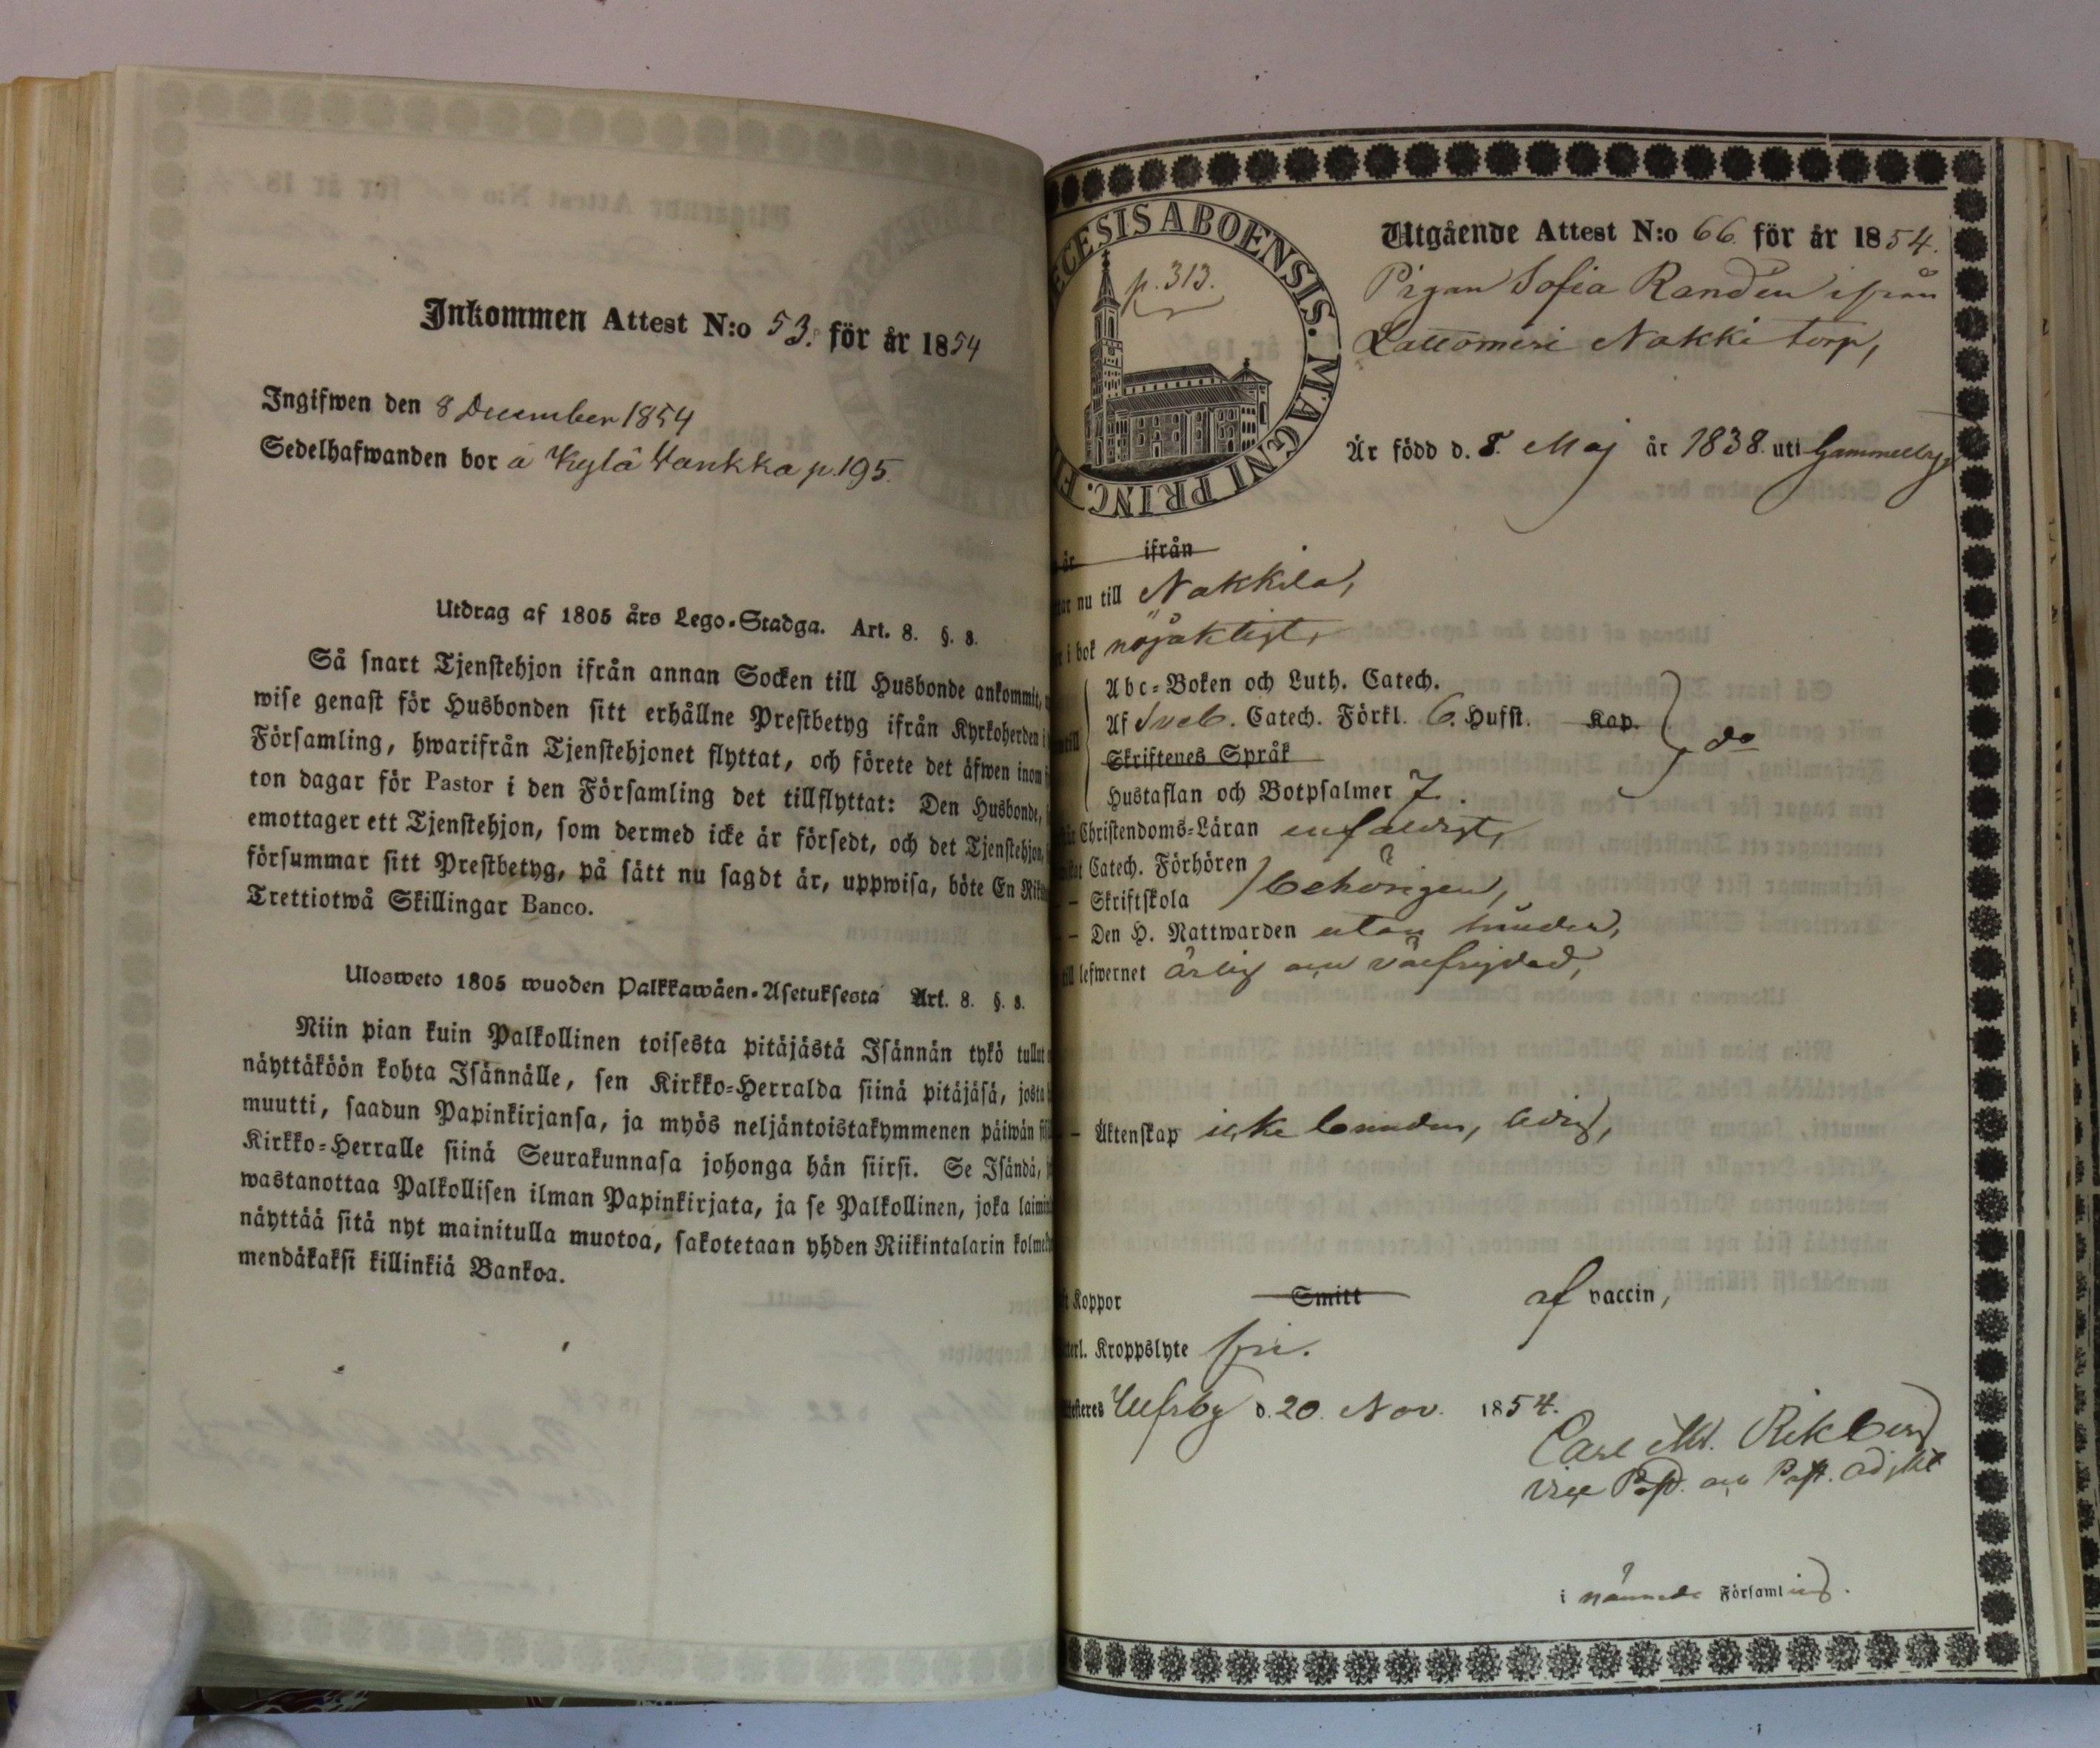 Inkommen Attest N:o 53. för år 1854
Ingifwen den 8 December 1854
Sedelhafwanden bor å Kylä Wankka p. 195.
Utdrag af 1805 års Lego-Stadga. Art. 8. §. 8.
Så snart Tjenstehjon ifrån annan Socken till Husbonde ankommit,
wise genast för Husbonden sitt erhållne Prestbetyg ifrån Kyrkoherden i
Församling, hwarifrån Tjenstehjonet flyttat, och förete det äfwen inom
ton dagar för Pastor i den Församling det tillflyttat: Den Husbonde,
emottager ett Tjenstehjon, som dermed icke är försedt, och det Tjenstehjon,
försummar sitt Prestbetyg, på sätt nu sagdt är, uppwisa, böte En
Trettiotwå Skillingar Banco.
Ulosweto 1805 wuoden Palkkawäen-Asetuksesta Art. 8. §. 8.
Niin pian kuin Palkollinen toisesta pitäjästä Isännän tykö tullut
näyttäköön kohta Isännälle, sen Kirkko-Herralda siinä pitäjäsä, josta
muutti, saadun Papinkirjansa, ja myös neljäntoistakymmenen päiwän
Kirkko-Herralle siinä Seurakunnasa johonga hän siirsi. Se Isändä,
wastanottaa Palkollisen ilman Papinkirjata, ja se Palkollinen, joka
näyttää sitä nyt mainitulla muotoa, sakotetaan yhden Riikintalarin
mendäkaksi killinkiä Bankoa.
ECESIS ABOENSIS. MAGNI PRINC. F
p. 313.
Utgående Attest N:o 66. för år 1854.
Pigan Sofia Randén ifrån
Lattomeri Nakki torp,
Är född d. 8. Maj år 1838. uti Gammelby
år ifrån
nu till Nakkila,
i bok nöjaktigt,
Abc-Boken och Luth. Catech.
Af Sveb. Catech. Förkl. 6. Hufst. Kap.
Skriftenes Språk
do
Hustaflan och Botpsalmer 7.
Christendoms-Läran enfaldigt,
Catech. Förhören
– Skriftskola behörigen,
– Den H. Nattwarden utan hinder,
till lefwernet ärlig och välfrejdad,
– Äktenskap icke bunden, ledig,
Koppor Smitt af vaccin,
Kroppslyte fri.
Ulfsby d. 20. Nov. 1854.
Carl M. Rikberg
vice Past. och Past. adjkt
i nämnde Församling.